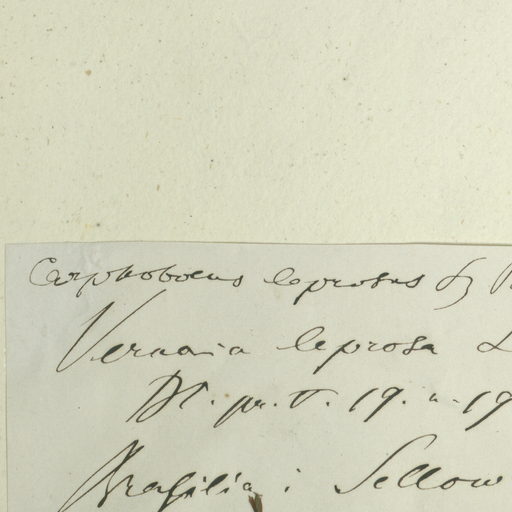 Carphobolus leprosus
Vernonia leprosa
DC. pr. V. 19. n. 19
Brasilia: Sellow